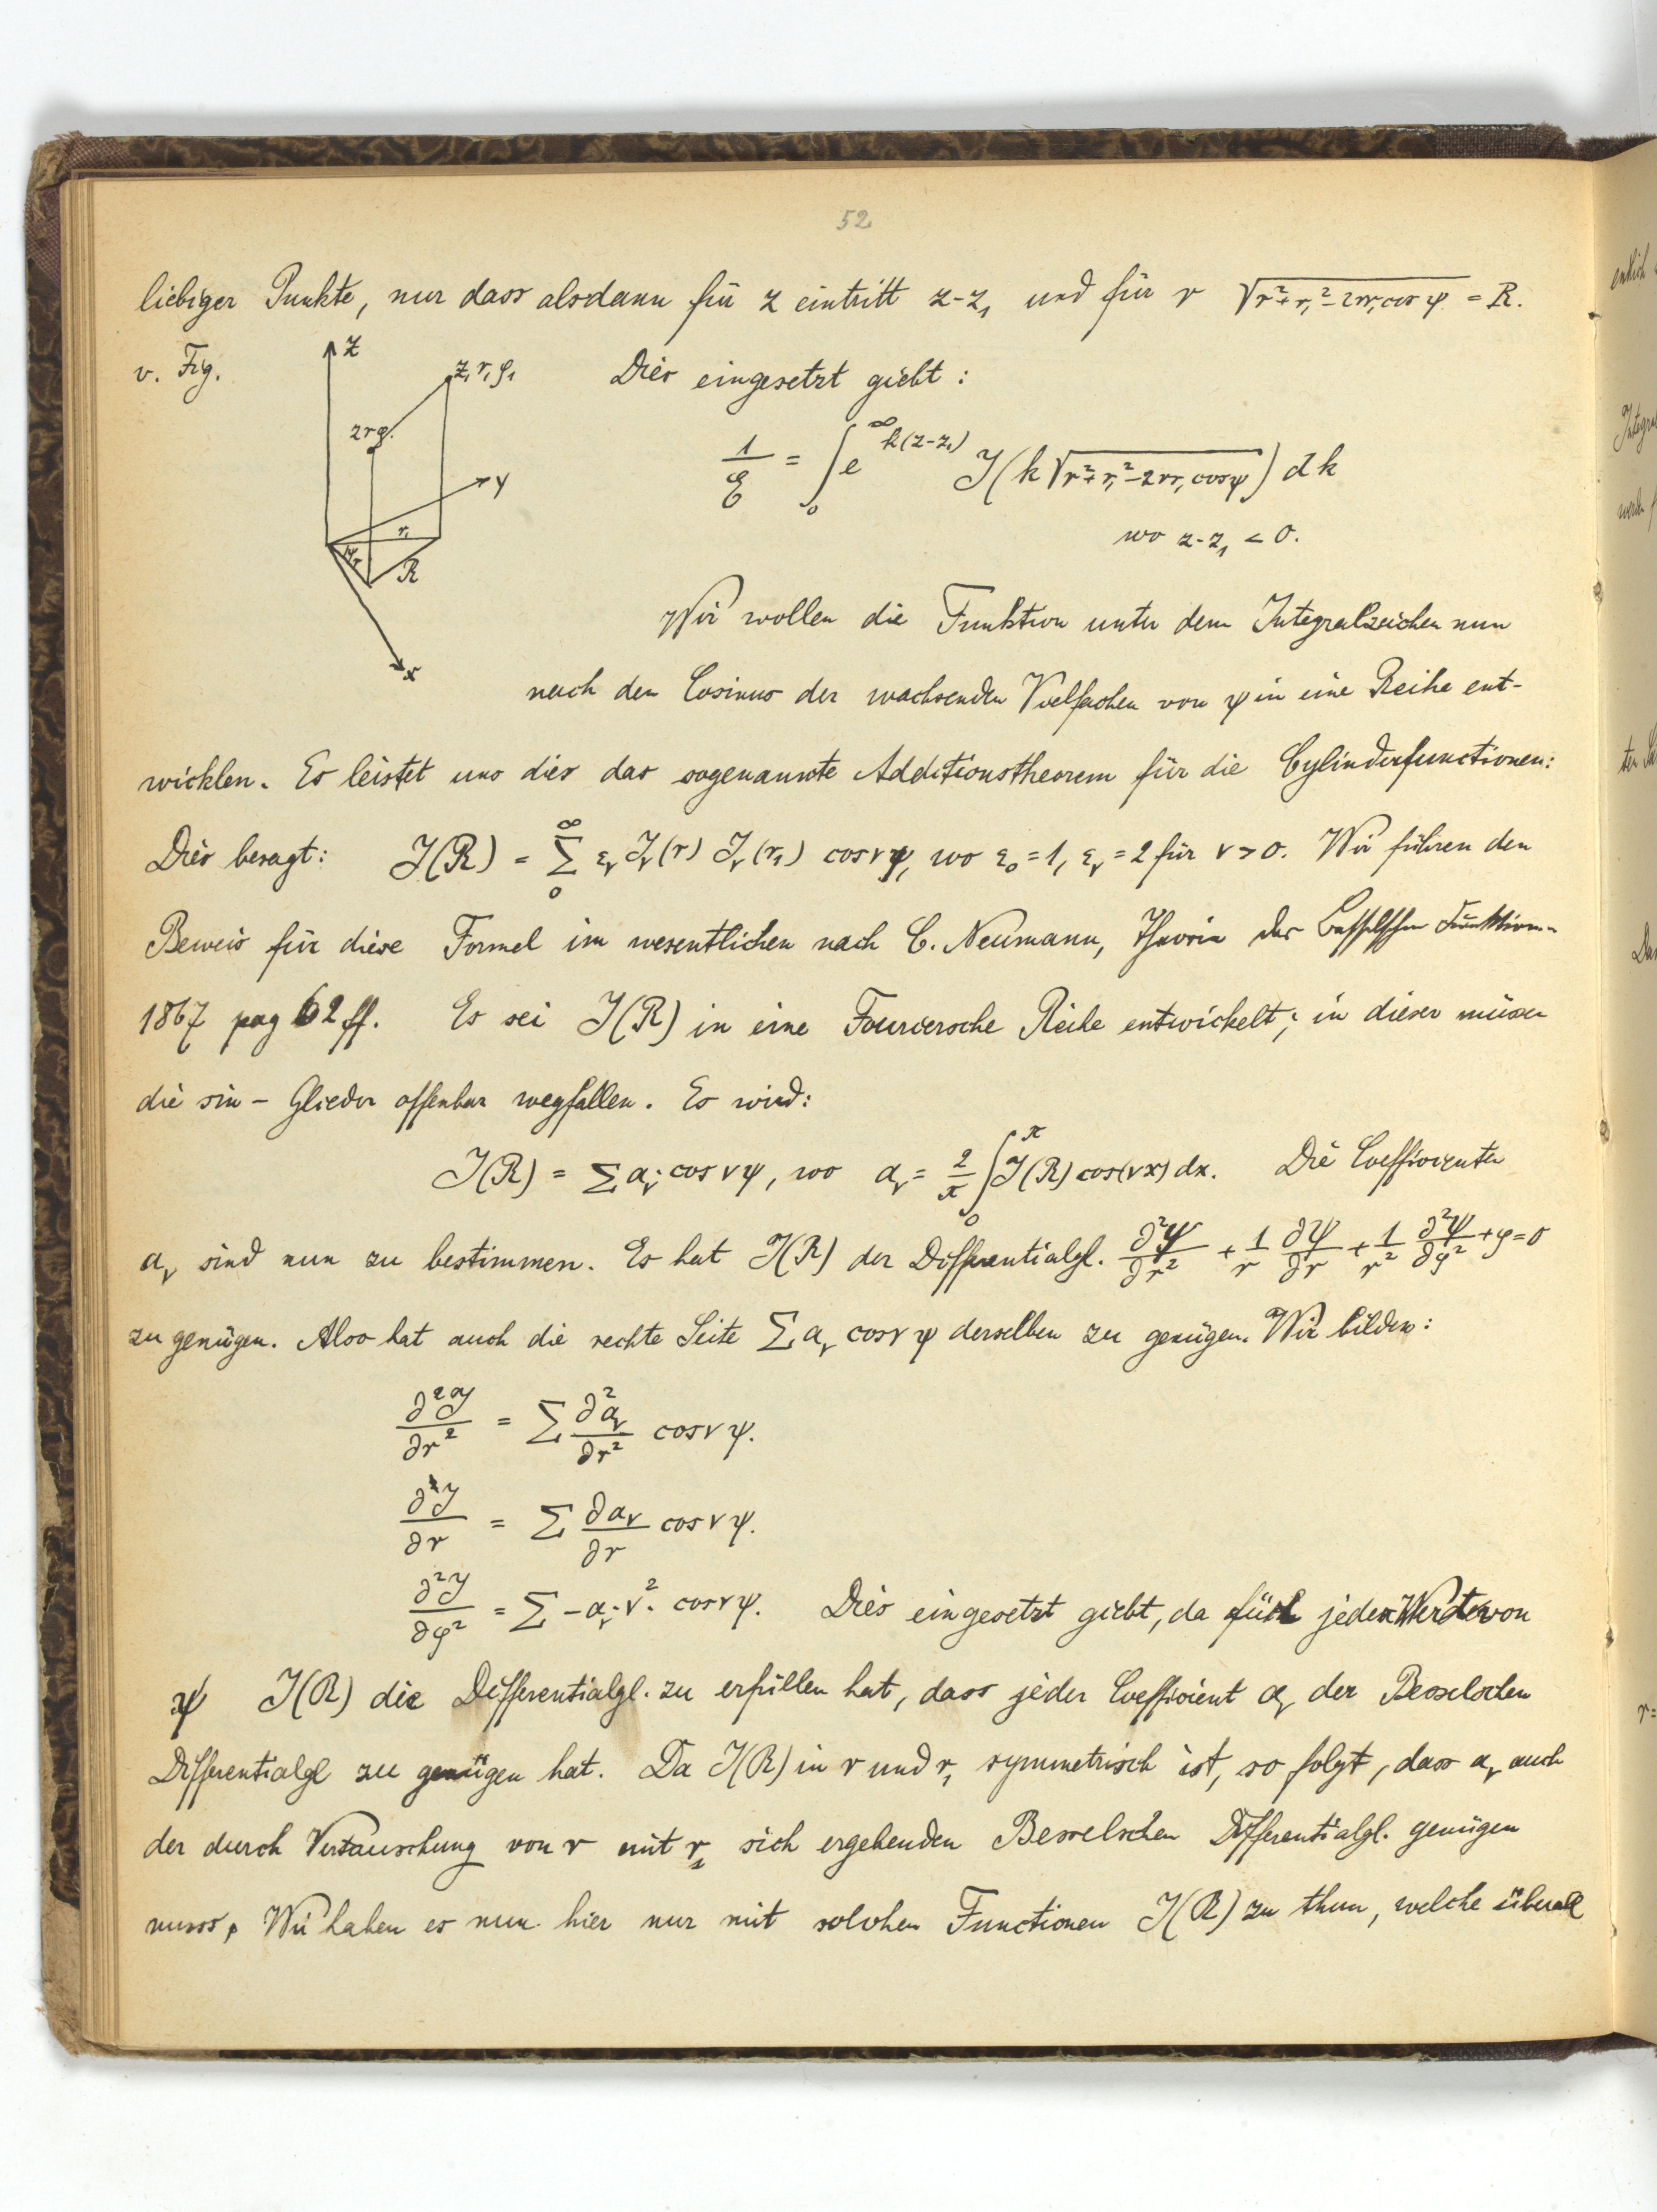 52
liebiger Punkte, nur dass alsdann für z eintritt z-z₁ und für r √(r²+r₁²-2rr₁cos ψ) = R.
v. Fig.
z
z₁ r₁ φ₁
z r φ.
y
r₁
ψ r
R
x
Dies eingesetzt giebt:
1/ℰ = ∫₀^∞ e^{k(z-z₁)} J(k√(r²+r₁²-2rr₁cosψ)) dk
wo z-z₁ < 0.
Wir wollen die Funktion unter dem Integralzeichen nun
nach den Cosinus der wachsenden Vielfachen von ψ in eine Reihe ent-
wicklen. Es leistet uns dies das sogenannte Additionstheorem für die Cylinderfunctionen:
Dies besagt: J(R) = Σ₀^∞ ε_ν J_ν(r) J_ν(r₁) cos νψ, wo ε₀=1, ε_ν=2 für ν>0. Wir führen den
Beweis für diese Formel im wesentlichen nach C. Neumann, Theorie der Besselschen Funktionen
1867 pag 62 ff. Es sei J(R) in eine Fouriersche Reihe entwickelt; in dieser müssen
die sin – Glieder offenbar wegfallen. Es wird:
J(R) = Σ a_ν · cos νψ, wo a_ν = 2/π ∫₀^π J(R) cos(νx) dx. Die Coefficienten
a_ν sind nun zu bestimmen. Es hat J(R) der Differentialgl. ∂²ψ/∂r² + 1/r ∂ψ/∂r + 1/r² ∂²ψ/∂φ² + φ = 0
zu genügen. Also hat auch die rechte Seite Σ a_ν cos ν ψ derselben zu genügen. Wir bilden:
∂²J/∂r² = Σ ∂²a_ν/∂r² cos ν ψ.
∂J/∂r = Σ ∂a_ν/∂r cos ν ψ.
∂²J/∂φ² = Σ – a_ν · ν² · cos ν ψ. Dies eingesetzt giebt, da für jeden Wert von
ψ J(R) die Differentialgl. zu erfüllen hat, dass jeder Coefficient a_ν der Besselschen
Differentialgl zu genügen hat. Da J(R) in r und r₁ symmetrisch ist, so folgt, dass a_ν auch
der durch Vertauschung von r mit r₁ sich ergebenden Besselschen Differentialgl. genügen
muss. Wir haben es nun hier nur mit solchen Functionen J(R) zu thun, welche überall